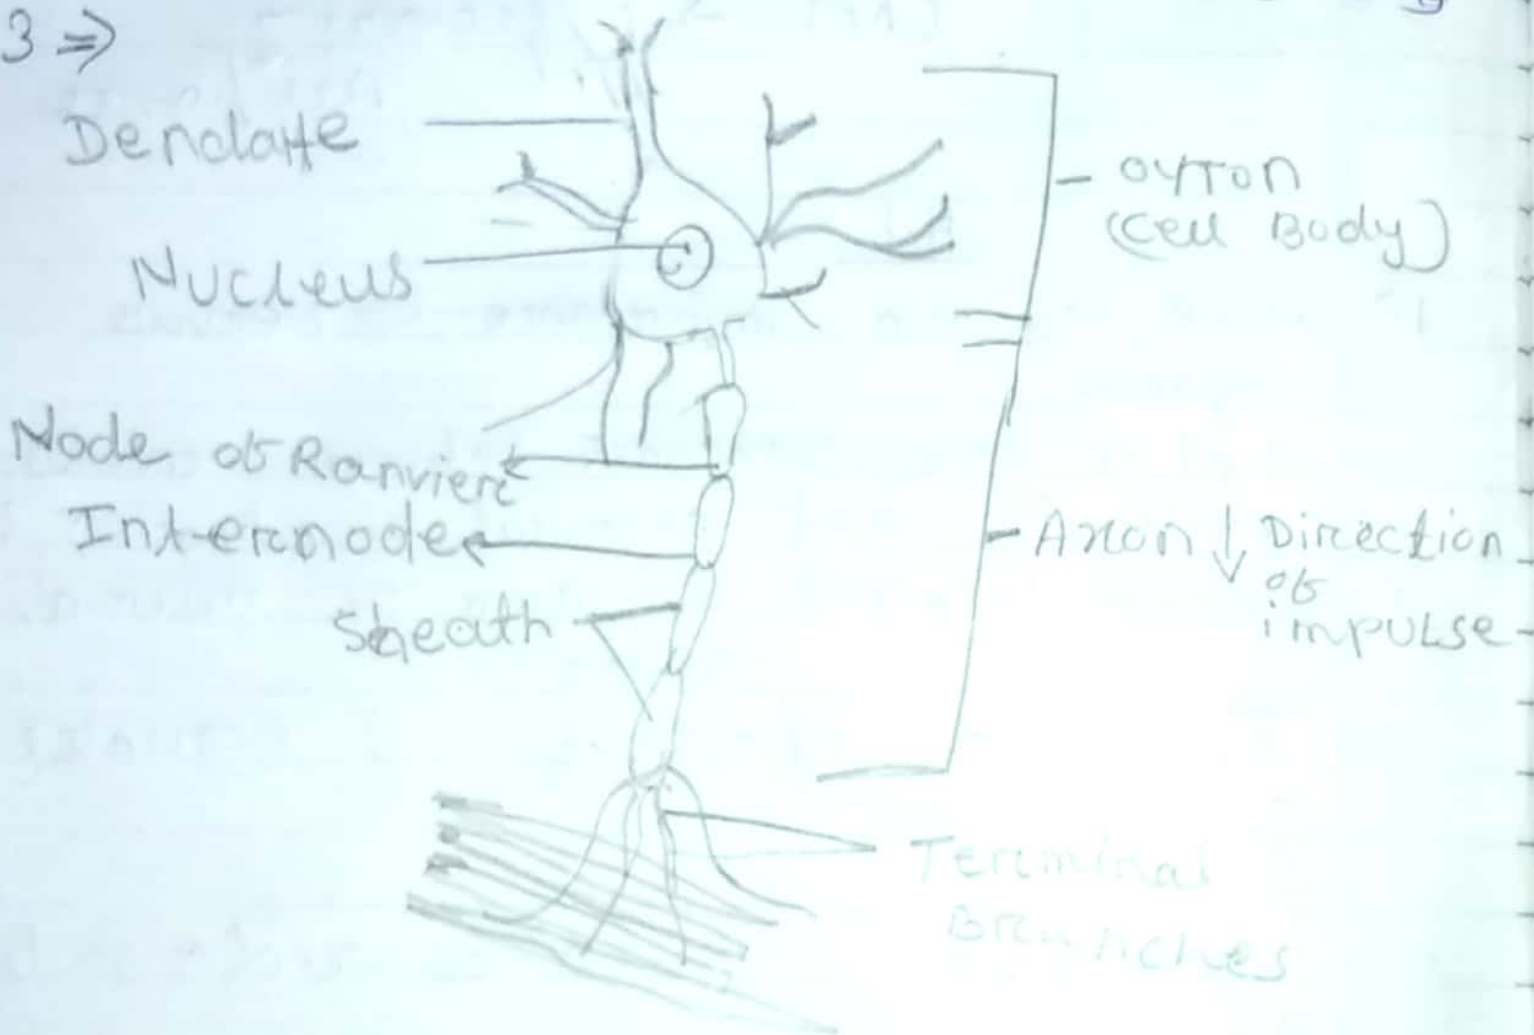 3 ⇒
Dendatte
Nucleus
Node of Ranviere
Internode
Sheath
oyton
(Cell Body)
Axon ↓ Direction
of
impulse
Terminal
Branches